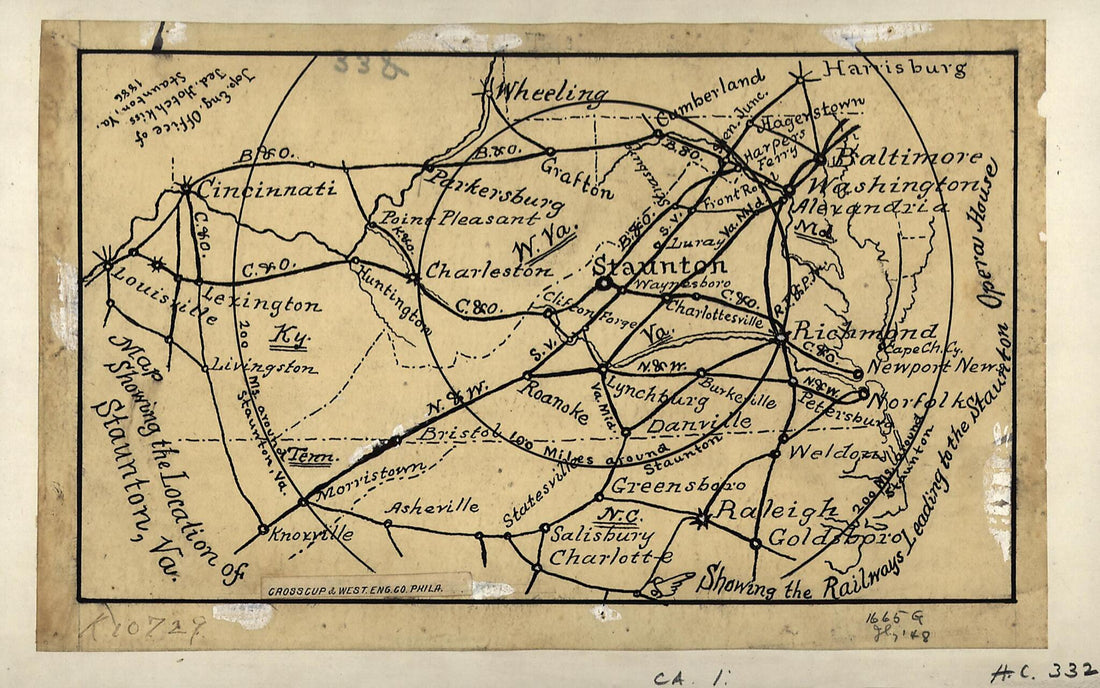 332
Top. Eng. Office of
Jed. Hotchkiss
Staunton, Va.
1886
Wheeling
Cumberland
Harrisburg
Hagerstown
B.&O.
B.&O.
B.&O.
Harpers
Ferry
Baltimore
Cincinnati
Parkersburg
Grafton
Front Royal
Washington
Alexandria
Point Pleasant
W. Va.
B.&O.
S.V.
Luray
Va. Mid.
Md.
C.&O.
K.&O.
Staunton
Waynesboro
C.&O.
Charleston
Huntington
C.&O.
Louisville
Lexington
C.&O.
Clifton Forge
Charlottesville
R.F.&P.
Richmond
Va.
C.&O.
Cape Ch. Cy.
Newport News
Ky.
Livingston
S.V.
N.&W.
N.&W.
Lynchburg
Burkeville
Petersburg
Norfolk
Roanoke
N.&W.
Va. Mid.
Danville
Bristol
100 Miles around
Staunton
200 Ms. around
Staunton, Va.
Weldon
200 Ms. around
Staunton
Tenn.
Morristown
Statesville
Greensboro
Asheville
N.C.
Raleigh
Knoxville
Salisbury
Goldsboro
Charlotte
Map
Showing the Location of
Staunton, Va.
Showing the Railways Leading to the Staunton Opera House
CROSSCUP & WEST. ENG. CO. PHILA.
1665 G
H.C. 332